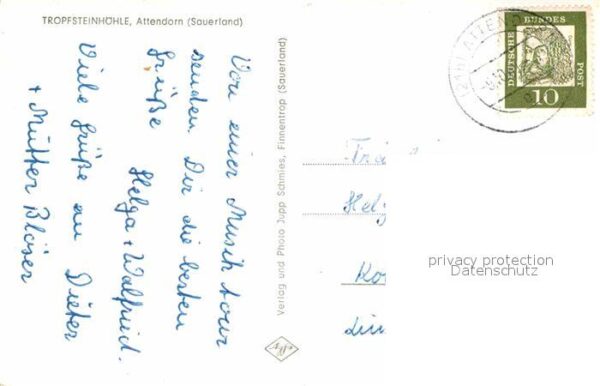 TROPFSTEINHÖHLE, Attendorn (Sauerland)
Von einer Musik tour
senden Dir die besten
Grüße
Helga + Walfried.
Viele Grüße an Dieter
+ Mutter Bläser
Verlag und Photo Jupp Schmies, Finnentrop (Sauerland)
ATTENDO
DEUTSCHE BUNDES POST
10
privacy protection
Datenschutz